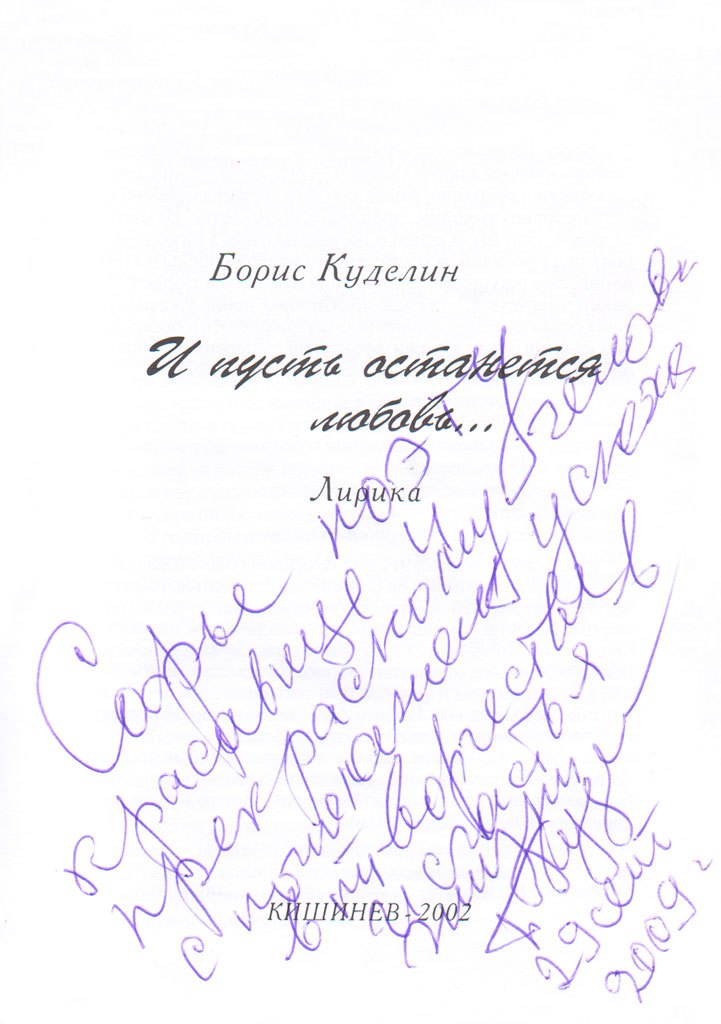 Борис Куделин
И пусть останется
любовь...
Лирика
Софье поэту
красавице и
прекрасному человеку
с пожеланием успехов
в творчестве
и счастья в
жизни
29 сент
2009 г
КИШИНЕВ - 2002